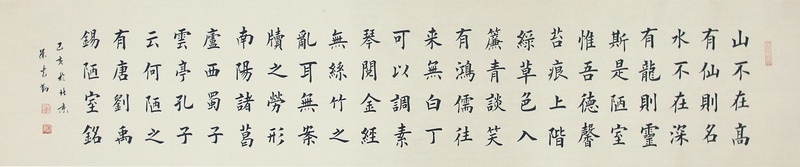 山不在高
有仙則名
水不在深
有龍則靈
斯是陋室
惟吾德馨
苔痕上階
綠草色入
簾青談笑
有鴻儒往
来無白丁
可以調素
琴閱金經
無絲竹之
亂耳無案
牘之勞形
南陽諸葛
廬西蜀子
雲亭孔子
云何陋之
有唐劉禹
錫陋室銘
己亥於北京